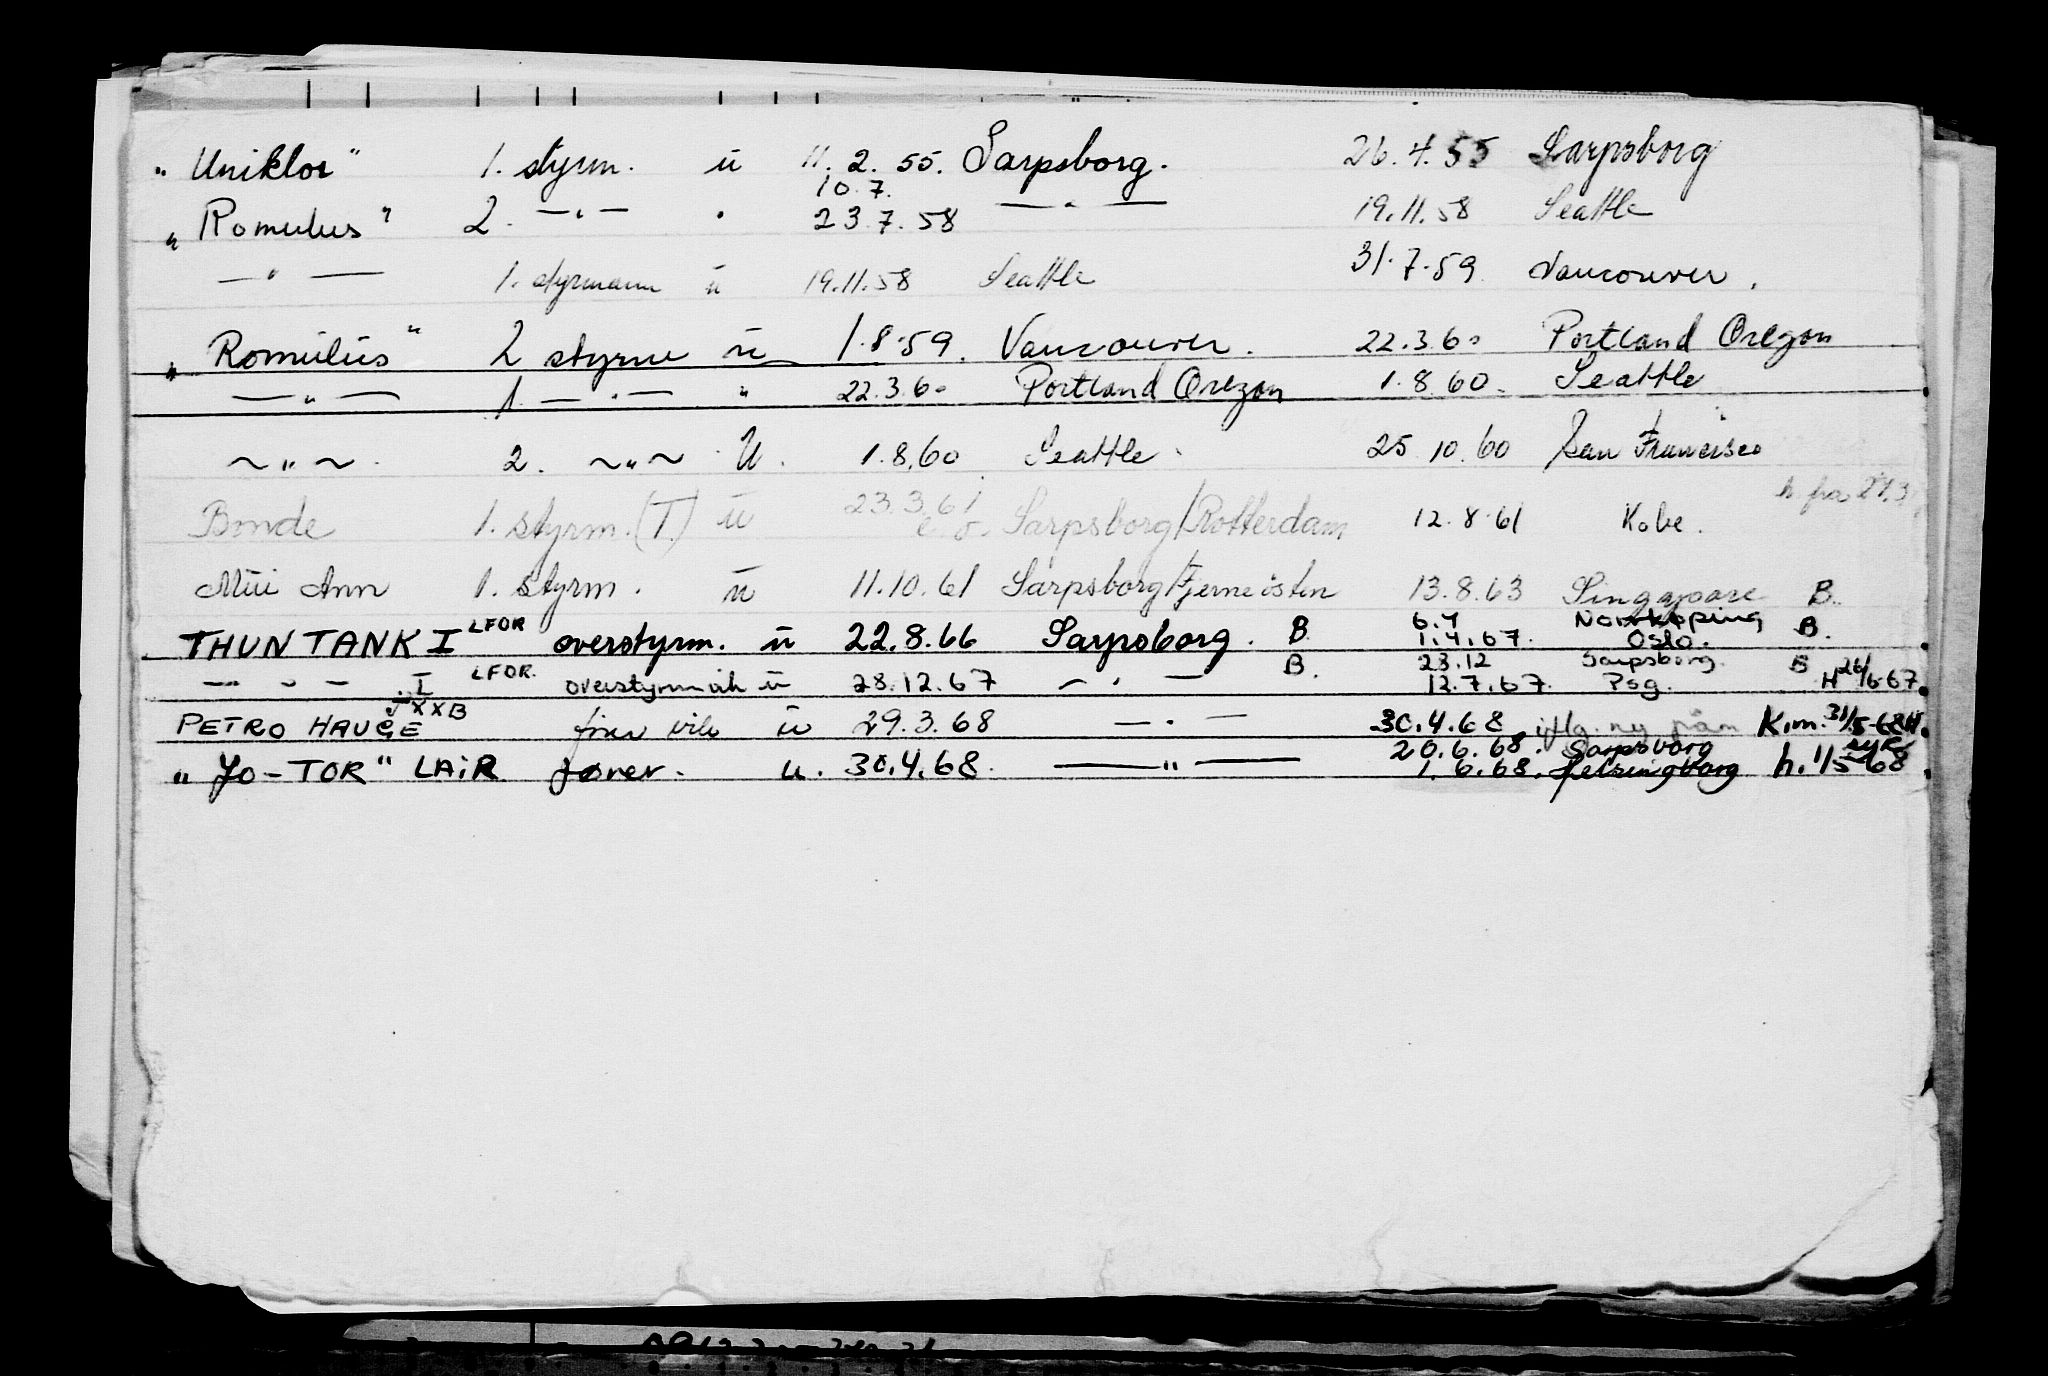 "Uniklor" 1. styrm. ü 11. 2. 55. Sarpsborg. 26. 4. 55 Sarpsborg
10. 7.
"Romulus" 2. —"— " 23. 7. 58 —"— 19. 11. 58 Seattle
—"— 1. styrmann ü 19. 11. 58 Seattle 31. 7. 59 Vancouver.
"Romulus" 2 styrm ü 1. 8. 59. Vancouver. 22. 3. 60 Portland Oregon
—"— 1. —"— " 22. 3. 60 Portland Oregon 1. 8. 60. Seattle
~"~. 2. ~"~ U. 1. 8. 60 Seattle. 25. 10. 60 San Francisco
h. fra
Bonde 1. styrm. (T.) ü 23. 3. 61 Sarpsborg/Rotterdam 12. 8. 61 Kobe.
Mui Ann 1. styrm. ü 11. 10. 61 Sarpsborg/Fjerneösten 13. 8. 63 Singapore B.
6. 4 Norrköping
THUNTANK I LFOR overstyrm. ü 22. 8. 66 Sarpsborg. B 1. 4. 67. Oslo. B.
B. 23. 12 Sarpsborg. B
—"— I LFOR. ü 28. 12. 67 —"— 12. 7. 67. Psg. H 26/6-67.
JXXB
PETRO HAUGE ü 29. 3. 68 —"— 30. 4. 68 K.m. 31/5-68
20. 6. 68. Sarpsborg
"JO-TOR" LAIR fører. u. 30. 4. 68. —"— 1. 6. 68. Helsingborg h. 1/5 68